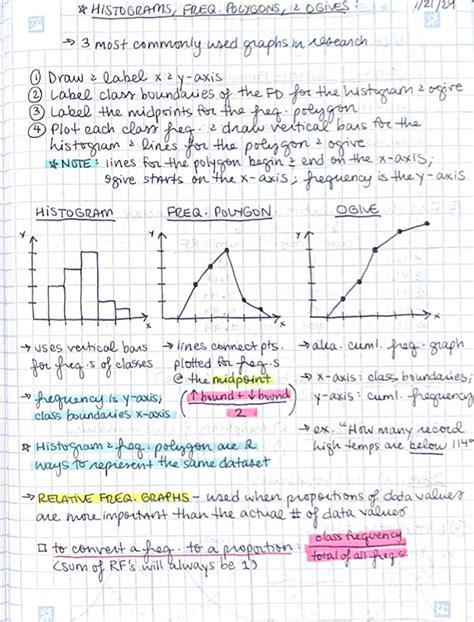 * HISTOGRAMS, FREQ. POLYGONS, & OGIVES:
1/21/24
→ 3 most commonly used graphs in research
① Draw & label x & y-axis
② Label class boundaries of the FD for the histogram & ogive
③ Label the midpoints for the freq. polygon
④ Plot each class freq. & draw vertical bars for the
histogram & lines for the polygon & ogive
* NOTE: lines for the polygon begin & end on the x-axis;
ogive starts on the x-axis; frequency is the y-axis
HISTOGRAM FREQ. POLYGON OGIVE
Y Y Y
X X X
→ uses vertical bars
for freq.s of classes
→ frequency is y-axis,
class boundaries x-axis
→ lines connect pts.
plotted for freq.s
@ the midpoint
(↑ bound + ↓ bound
2)
→ aka. cuml. freq. graph
→ x-axis: class boundaries;
y-axis: cuml. frequency
→ ex. "How many record
high temps are below 114°
* Histogram & freq. polygon are 2
ways to represent the same dataset
→ RELATIVE FREQ. GRAPHS - used when proportions of data values
are more important than the actual # of data values
□ to convert a freq. to a proportion: class frequency
total of all freq.s
(sum of RF's will always be 1)